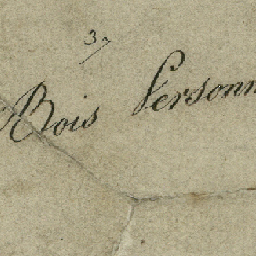 37
Bois Personn